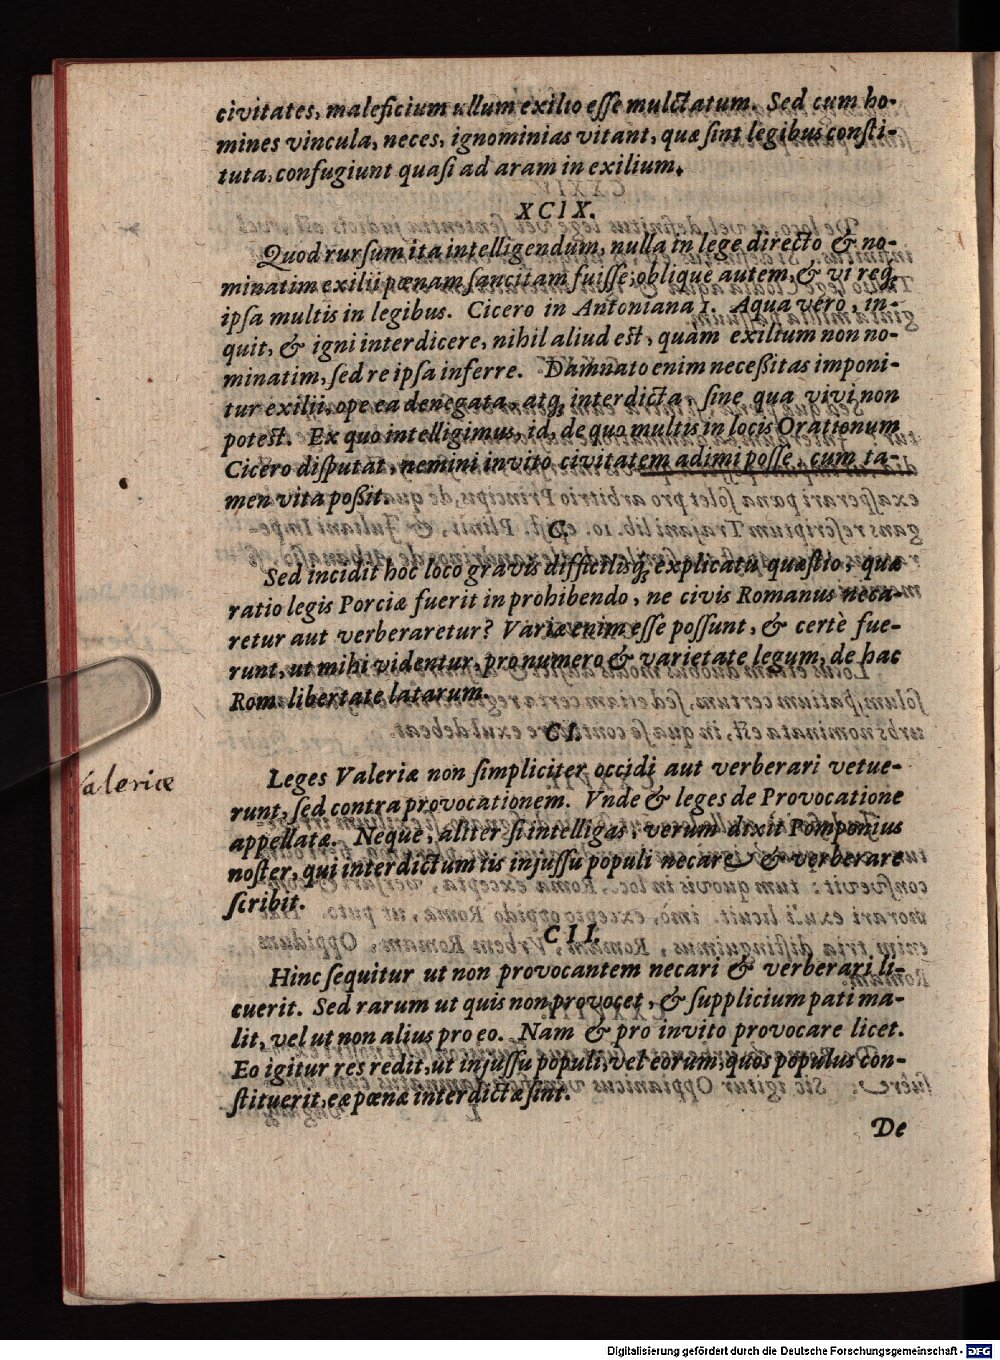 civitates, maleficium ullum exilio esse mulctatum. Sed cum ho-
mines vincula, neces, ignominias vitant, quæ sint legibus consti-
tuta, confugiunt quasi ad aram in exilium.
XCIX.
Quod rursum ita intelligendum, nulla in lege directo & no-
minatim exilii pœnam sancitam fuisse, oblique autem & vi reꝗ
ipsa multis in legibus. Cicero in Antoniana 1. Aqua vero, in-
quit, & igni interdicere, nihil aliud est, quam exilium non no-
minatim, sed re ipsa inferre. Damnato enim necessitas imponi-
tur exilii, ope ea denegata, atꝗ interdicta, sine qua vivi non
potest. Ex quo intelligimus, id, de quo multis in locis Orationum
Cicero disputat, nemini invito civitatem adimi posse, cum ta-
men vita possit.
C.
Sed incidit hoc loco gravis difficilisꝗ explicatu quæstio, quæ
ratio legis Porciæ fuerit in prohibendo, ne civis Romanus neca-
retur aut verberaretur? Variæ enim esse possunt, & certè fue-
runt, ut mihi videntur, pro numero & varietate legum, de hac
Rom. libertate latarum.
CI.
Valeriæ
Leges Valeriæ non simpliciter occidi aut verberari vetue-
runt, sed contra provocationem. Vnde & leges de Provocatione
appellatæ. Neque, aliter si intelligas, verum dixit Pomponius
noster, qui interdictum iis injussu populi necare & verberare
scribit.
CII.
Hinc sequitur ut non provocantem necari & verberari li-
cuerit. Sed rarum ut quis non provocet, & supplicium pati ma-
lit, vel ut non alius pro eo. Nam & pro invito provocare licet.
Eo igitur res redit, ut injussu populi, vel eorum, quos populus con-
stituerit, eæ pœnæ interdictæ sint.
De
Digitalisierung gefördert durch die Deutsche Forschungsgemeinschaft - DFG